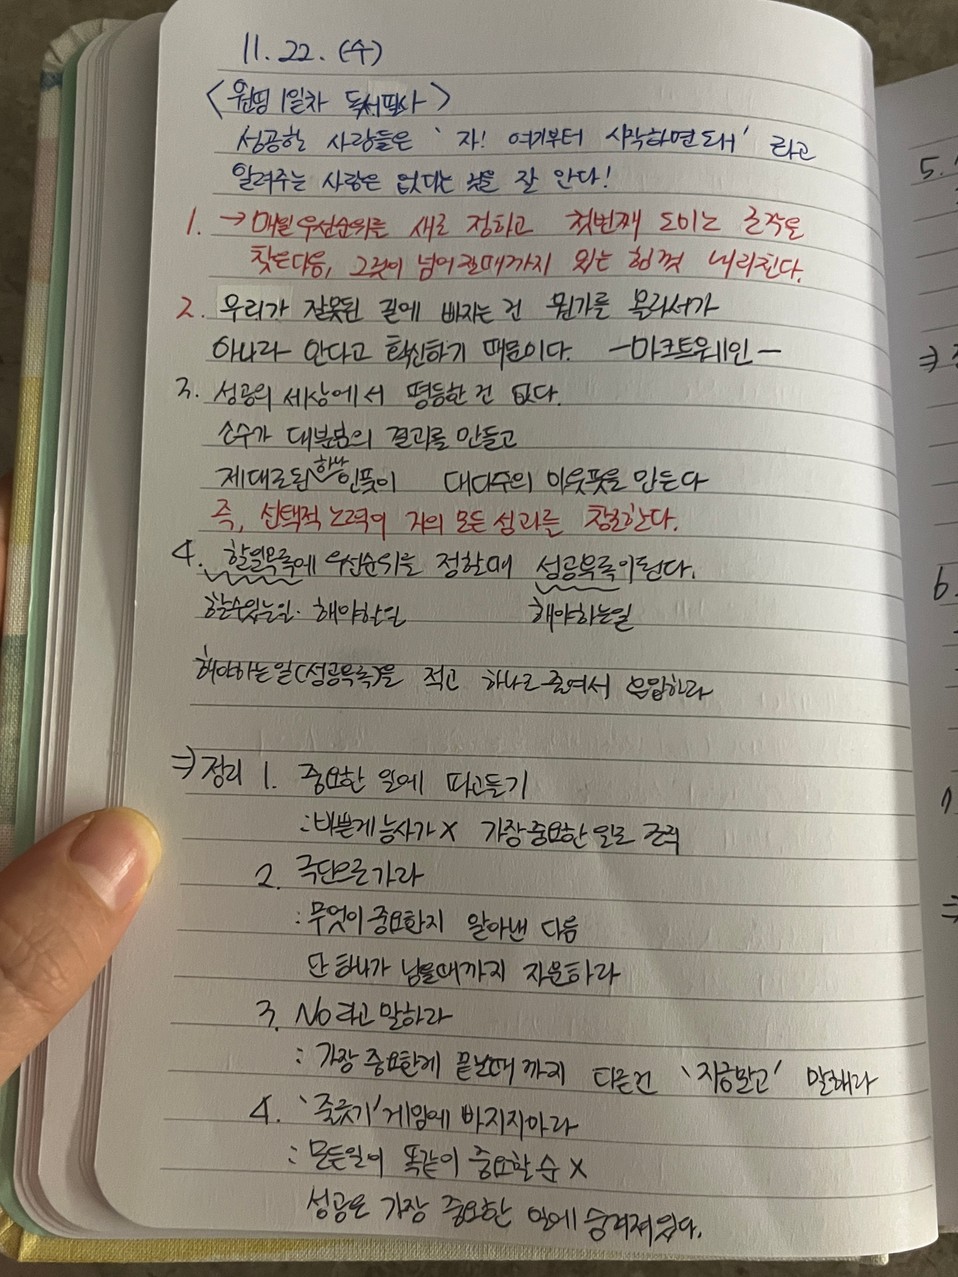 11. 22. (수)
<원띵 1일차 독서필사>
성공한 사람들은 '자! 여기부터 시작하면 돼' 라고
알려주는 사람은 없다는 것을 잘 안다!
1. → 매일 우선순위를 새로 정하고 첫번째 도미노 조각을
찾은다음, 그것이 넘어갈때까지 있는 힘껏 내리친다.
2. 우리가 잘못된 길에 빠지는 건 뭔가를 몰라서가
아니라 안다고 확신하기 때문이다. -마크트웨인-
3. 성공의 세상에서 평등한 건 없다.
소수가 대부분의 결과를 만들고
제대로된 하나 인풋이 대다수의 아웃풋을 만든다
즉, 선택적 노력이 거의 모든 성과를 창조한다.
4. 할일목록에 우선순위를 정할때 성공목록이된다.
할수있는일. 해야할일 해야하는일
해야하는일(성공목록)을 적고 하나로 줄여서 응답하라
⇒ 정리 1. 중요한 일에 파고들기
: 바쁘게 능사가 X 가장중요한 일로
2. 극단으로가라
: 무엇이 중요한지 알아낸 다음
단 하나가 남을때까지 자문하라
3. No라고 말하라
: 가장 중요한게 끝날때 까지 다른건 '지금말고' 말해라
4. '줄긋기' 게임에 빠지지마라
: 모든일이 똑같이 중요할 순 X
성공은 가장 중요한 일에 숨겨져있다.
5.
⇒
6.
⇒